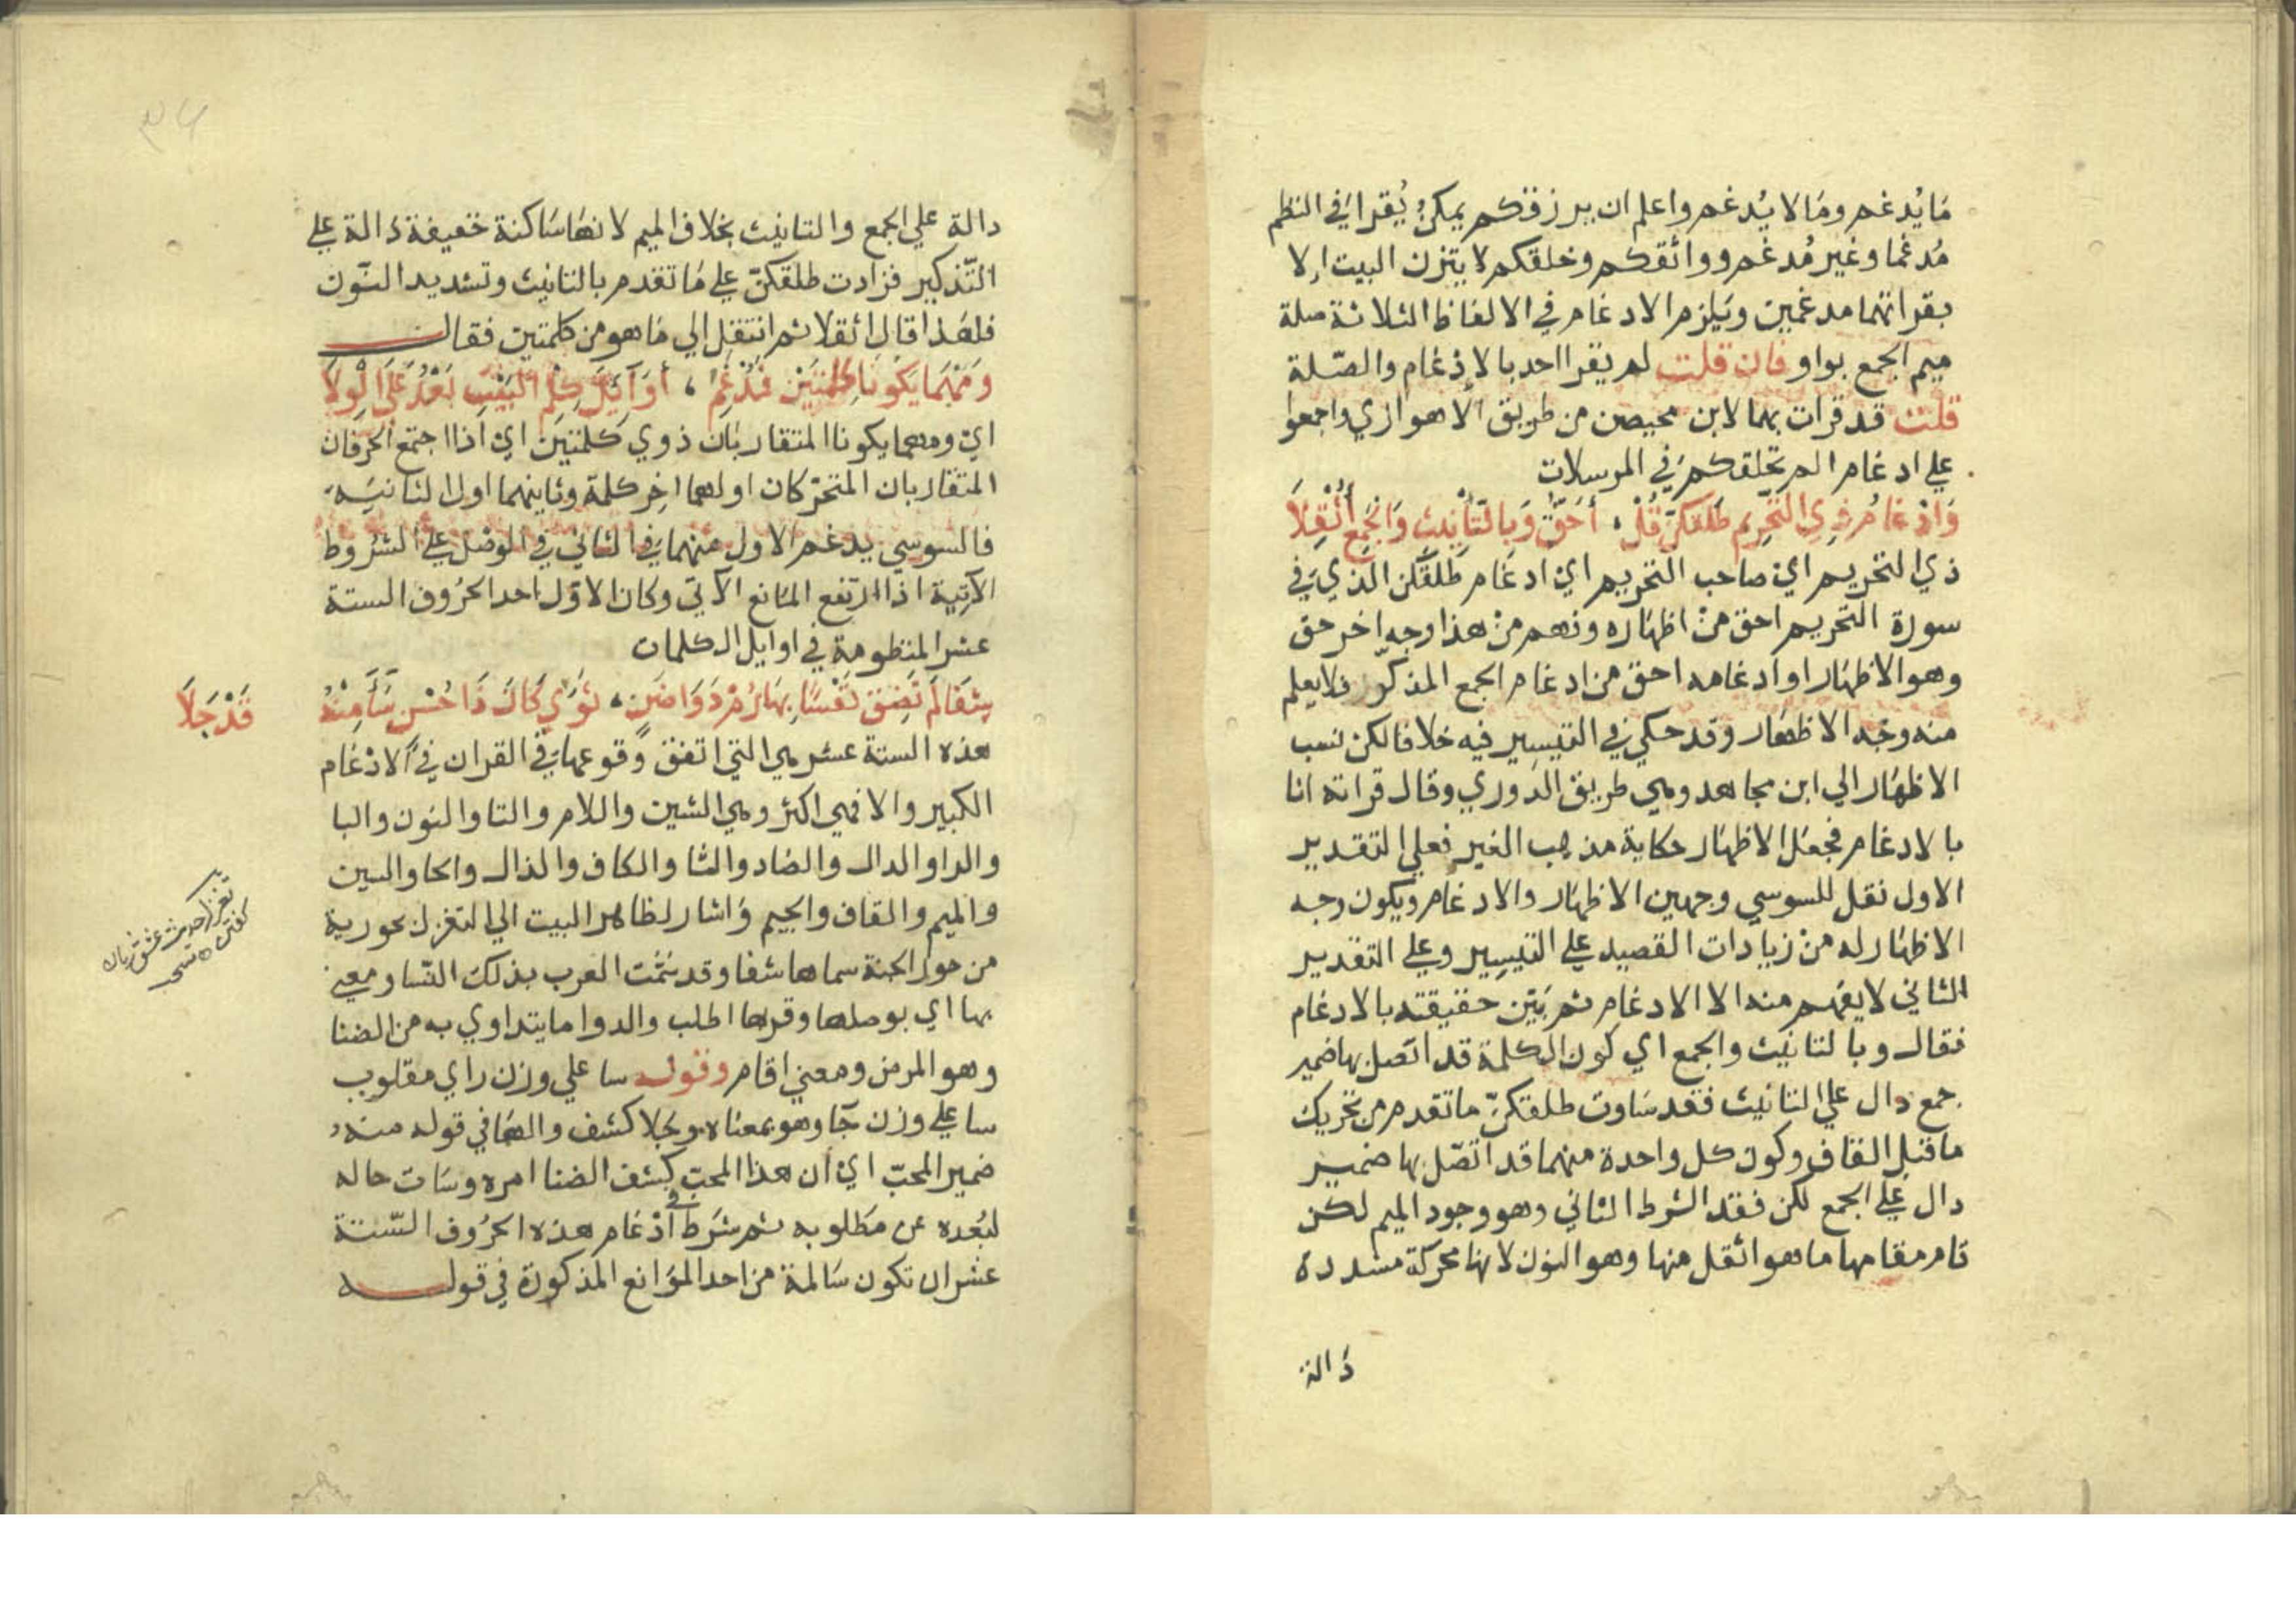 مَا يُدغم ومَا لا يُدغم واعلم ان يرزقكم يمكن يُقرا في النظم
مُدغما وغير مُدغم وواثقكم وخلقكم لا يتزن البيت إلا
بقراتهما مدغمين ويَلزم الادغام في الالفاظ الثلاثة صلة
ميم الجمع بواو فان قلت لم يقرا احد بالادغام والصّلة
قلت قد قرات بهما لابن محيصن من طريق الاهوازي واجمعوا
علي ادغام الم نخلقكم في المرسلات
وَادْغامُ ذِي التَّحْرِيمِ طَلَّقَكُنَّ قُلْ ، أَحَقُّ وَبِالتَّأنِيثِ وَالجَمْعِ أُثْقِلَا
ذي التحريم اي صاحب التحريم اي ادغام طلقكن الذي في
سورة التحريم احق من اظهاره وفهم من هذا وجه اخر حق
وهو الاظهار او ادغامه احق من ادغام الجمع المذكر فلا يعلم
منه وجه الاظهار وقد حكي في التيسير فيه خلافا لكن نسب
الاظهار الي ابن مجاهد وهي طريق الدوري وقال قراته انا
بالادغام فجعل الاظهار حكاية مذهب الغير فعلي التقدير
الاول نقل للسوسي وجهين الاظهار والادغام ويكون وجه
الاظهار له من زيادات القصيد علي التيسير وعلي التقدير
الثاني لا يفهم منه الا الادغام ثم بَيّن حقيقته بالادغام
فقال وبالتانيث والجمع اي كون الكلمة قد اتصل بها ضمير
جمع دال علي التانيث فقد سَاوت طلقكنّ ما تقدم من تحريك
ما قبل القاف وكون كل واحدة منهما قد اتّصل بها ضمير
دال علي الجمع لكن فقد الشرط الثاني وهو وجود الميم لكن
قام مقامها ما هو اثقل منها وهو النون لانها محركة مشددة
دَالة
دالة علي الجمع والتانيث بخلاف الميم لانها سَاكنة خفيفة دَالة علي
التّذكير فزادت طلقكنّ علي مَا تقدم بالتانيث وتشديد النّون
فلهٰذا قال اثقلا ثم انتقل الي مَا هو من كلمتين فقال
وَمَهْمَا يَكُونَا كِلْمَتَيْنِ فَمُدْغِمٌ ، أَوَائِلَ كِلْمِ البَيْتِ بَعْدُ عَلَى الْوِلَا
اي ومهما يكونا المتقاربان ذوي كلمتين اي اذا اجتمع الحرفان
المتقاربان المتحركان اولهما اخِر كلمة وثانيهما اول الثانيَه
فالسوسي يدغم الاول منهما في الثاني في الوصل علي الشروط
الآتية اذا ارتفع المانع الآتي وكان الاوّل احد الحروف الستة
عشر المنظومة في اوايل الكلمات
شِفَا لَمْ تَضِقْ نَفْسًا بِهَا رُمْ دَوَا ضَنٍ ، ثَوَى كَانَ ذَا حُسْنٍ سَأَى مِنْهُ
قَدْ جَلَا
هذه الستة عشر هي التي اتفق وقوعها في القران في الادغام
الكبير والا فهي اكثر وهي الشين واللام والتا والنون والبا
والرا والدال والضاد والثا والكاف والذال والحا والسين
والميم والقاف والجيم وَاشار لظاهر البيت الي التغزل بحورية
من حور الجنة سماها شفا وقد سَمَّت العرب بذلك النّسا ومعني
بها اي بوصلها وقربها اطلب والدوا ما يتداوي به من الضنا
وهو المرض ومعني اقام وقوله سا علي وزن راي مقلوب
سا علي وزن جآ وهو بمعناه وجَلا كشف والهَا في قوله منه
ضمير المحبّ اي ان هذا المحب كشف الضنا امره وسَات حاله
لبُعده عن مَطلوبه ثم شرَط في ادْغام هذه الحرُوف السّتة
عشر ان تكون سَالمة من احد المَوانع المذكورة في قوله